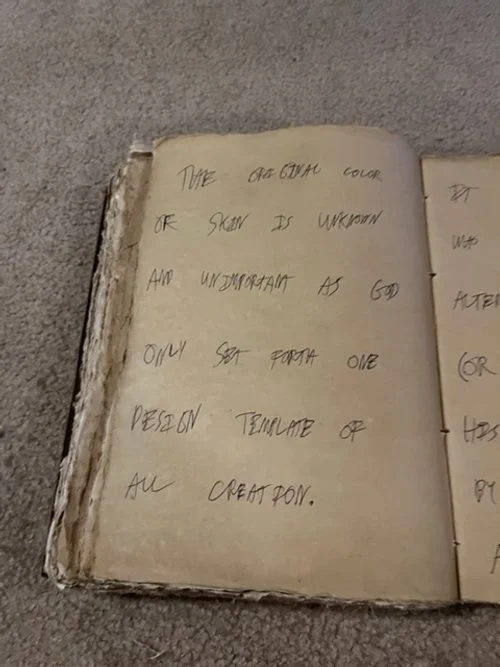 THE ORIGINAL COLOR
OF SKIN IS UNKNOWN
AND UNIMPORTANT AS GOD
ONLY SET FORTH ONE
DESIGN TEMPLATE OF
ALL CREATION.
IT
WHO
ALTER
COR
HIS
BY